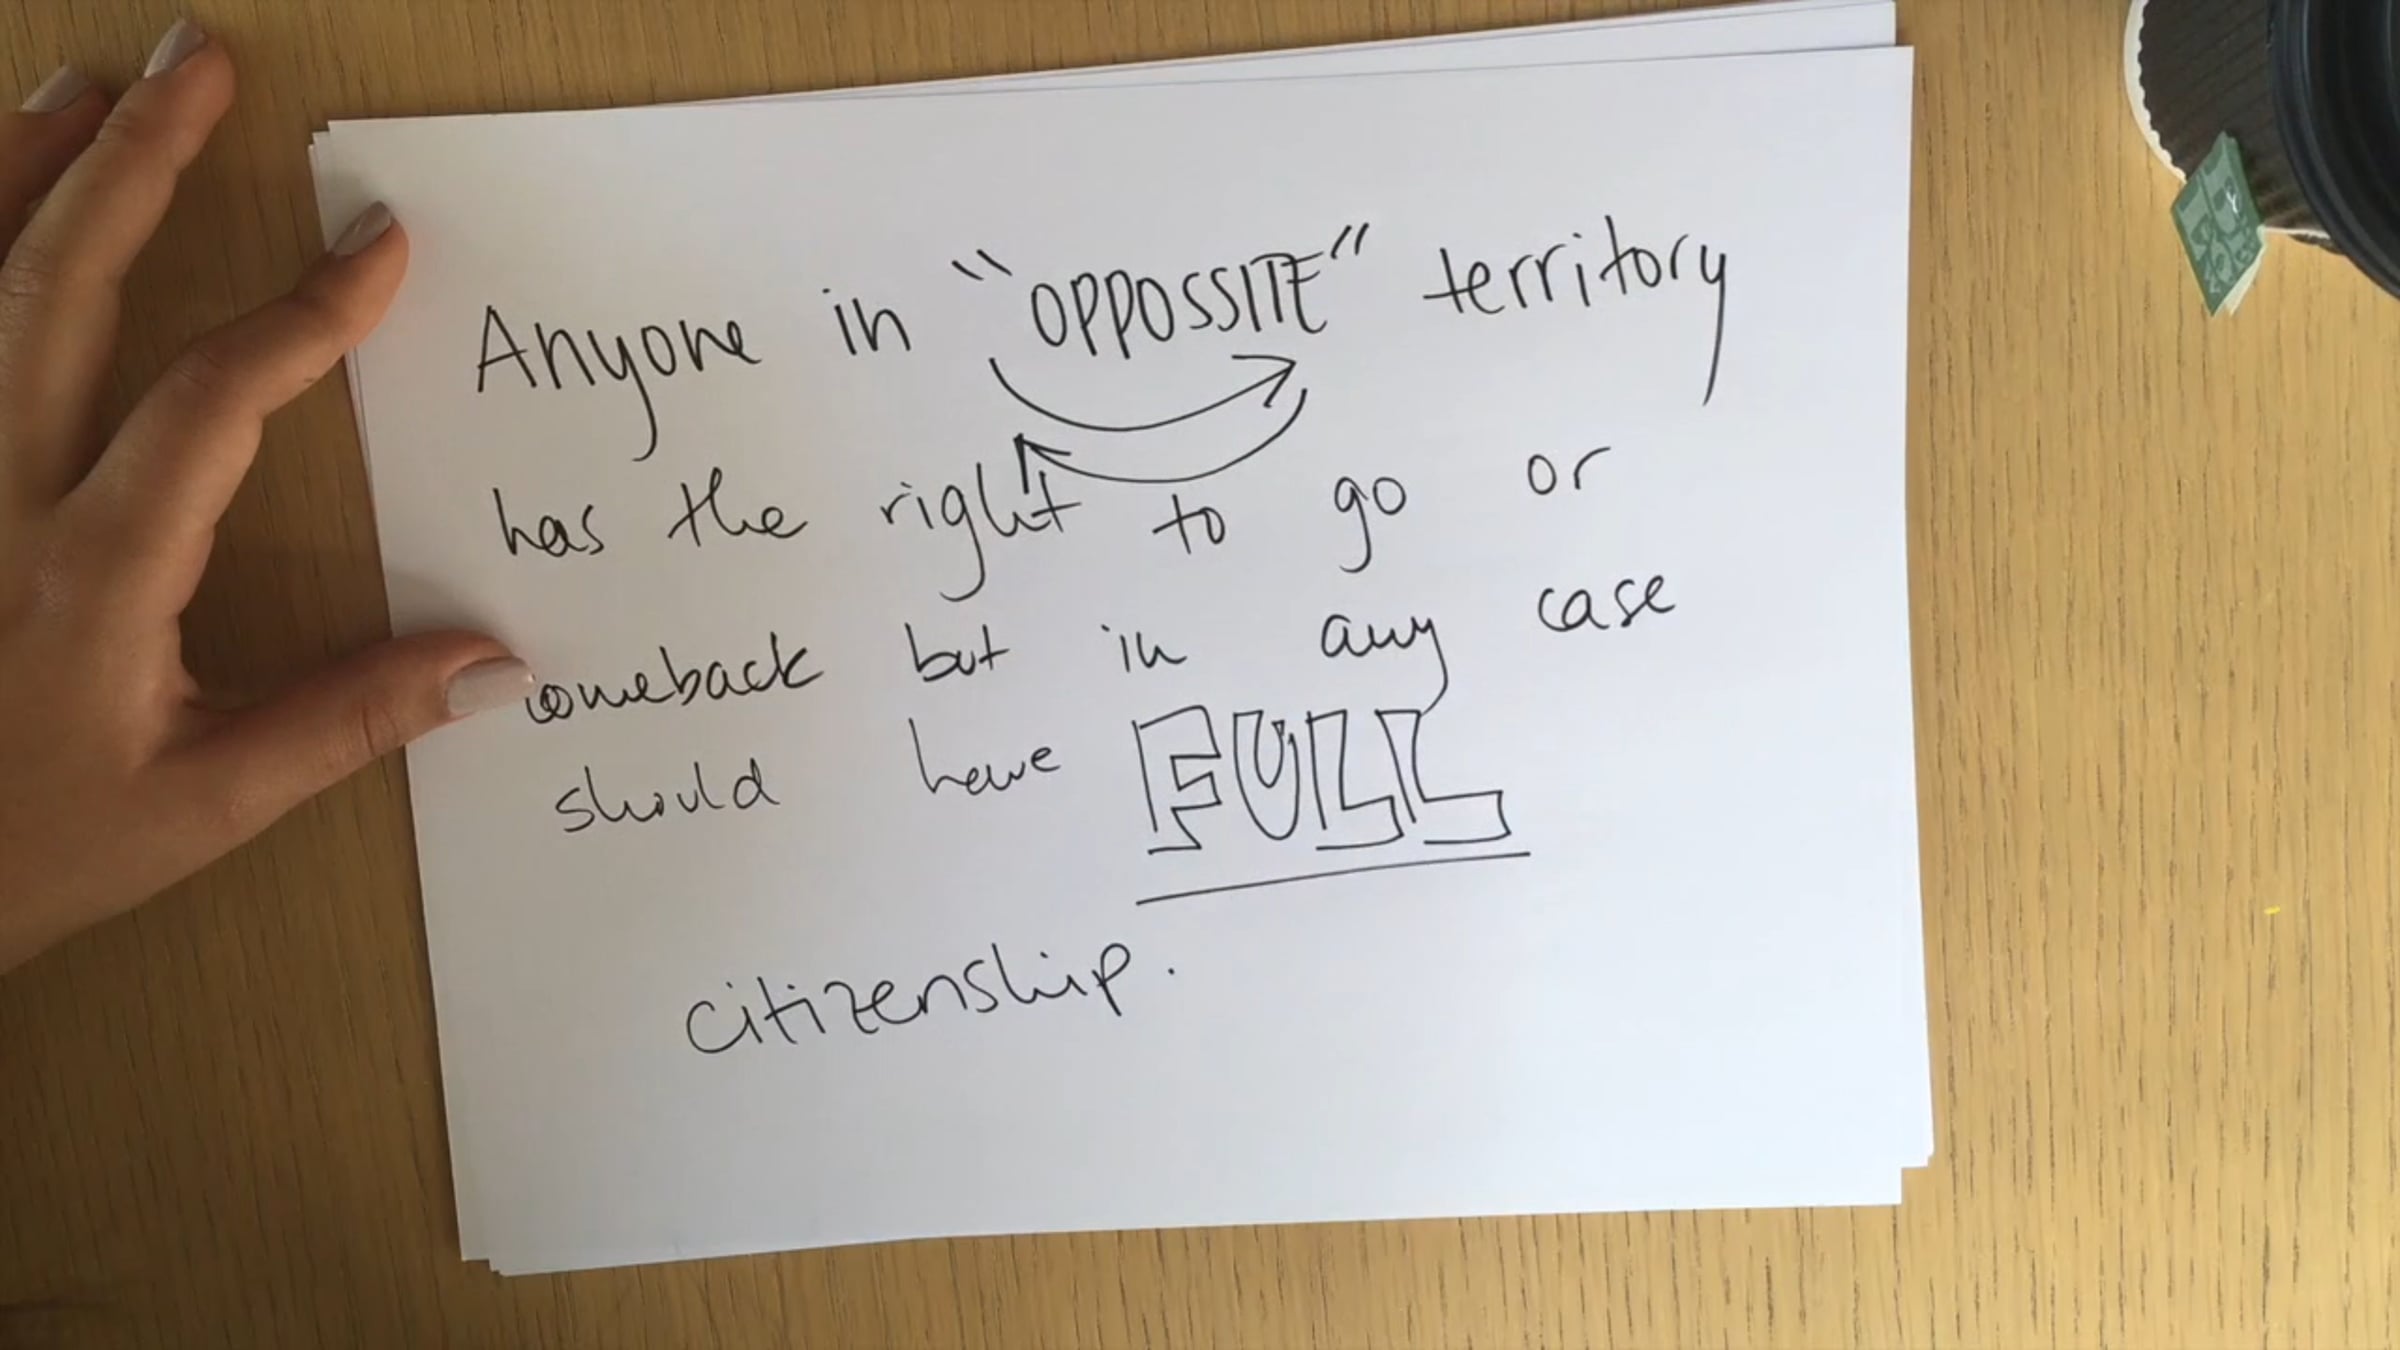 Anyone in "OPPOSSITE" territory
has the right to go or
comeback but in any case
should have FULL
citizenship.